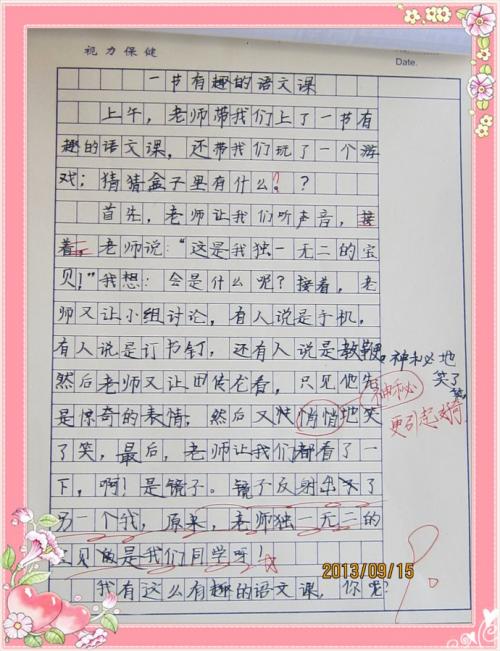 视力保健
Date.
一节有趣的语文课
上午，老师带我们上了一节有
趣的语文课，还带我们玩了一个游
戏：猜猜盒子里有什么？
首先，老师让我们听声音，接
着，老师说：“这是我独一无二的宝
贝！”我想：会是什么呢？接着，老
师又让小组讨论，有人说是手机，
有人说是订书钉，还有人说是教鞭。
神秘地
然后老师又让田传龙看，只见他先
笑了
神秘
是惊奇的表情，然后又悄悄地笑
更引起好奇
了笑，最后，老师让我们都看了一
下，啊！是镜子。镜子反射出了
另一个我，原来，老师独一无二的
贝是我们同学呀！
2013/09/15
我有这么有趣的语文课，你呢？